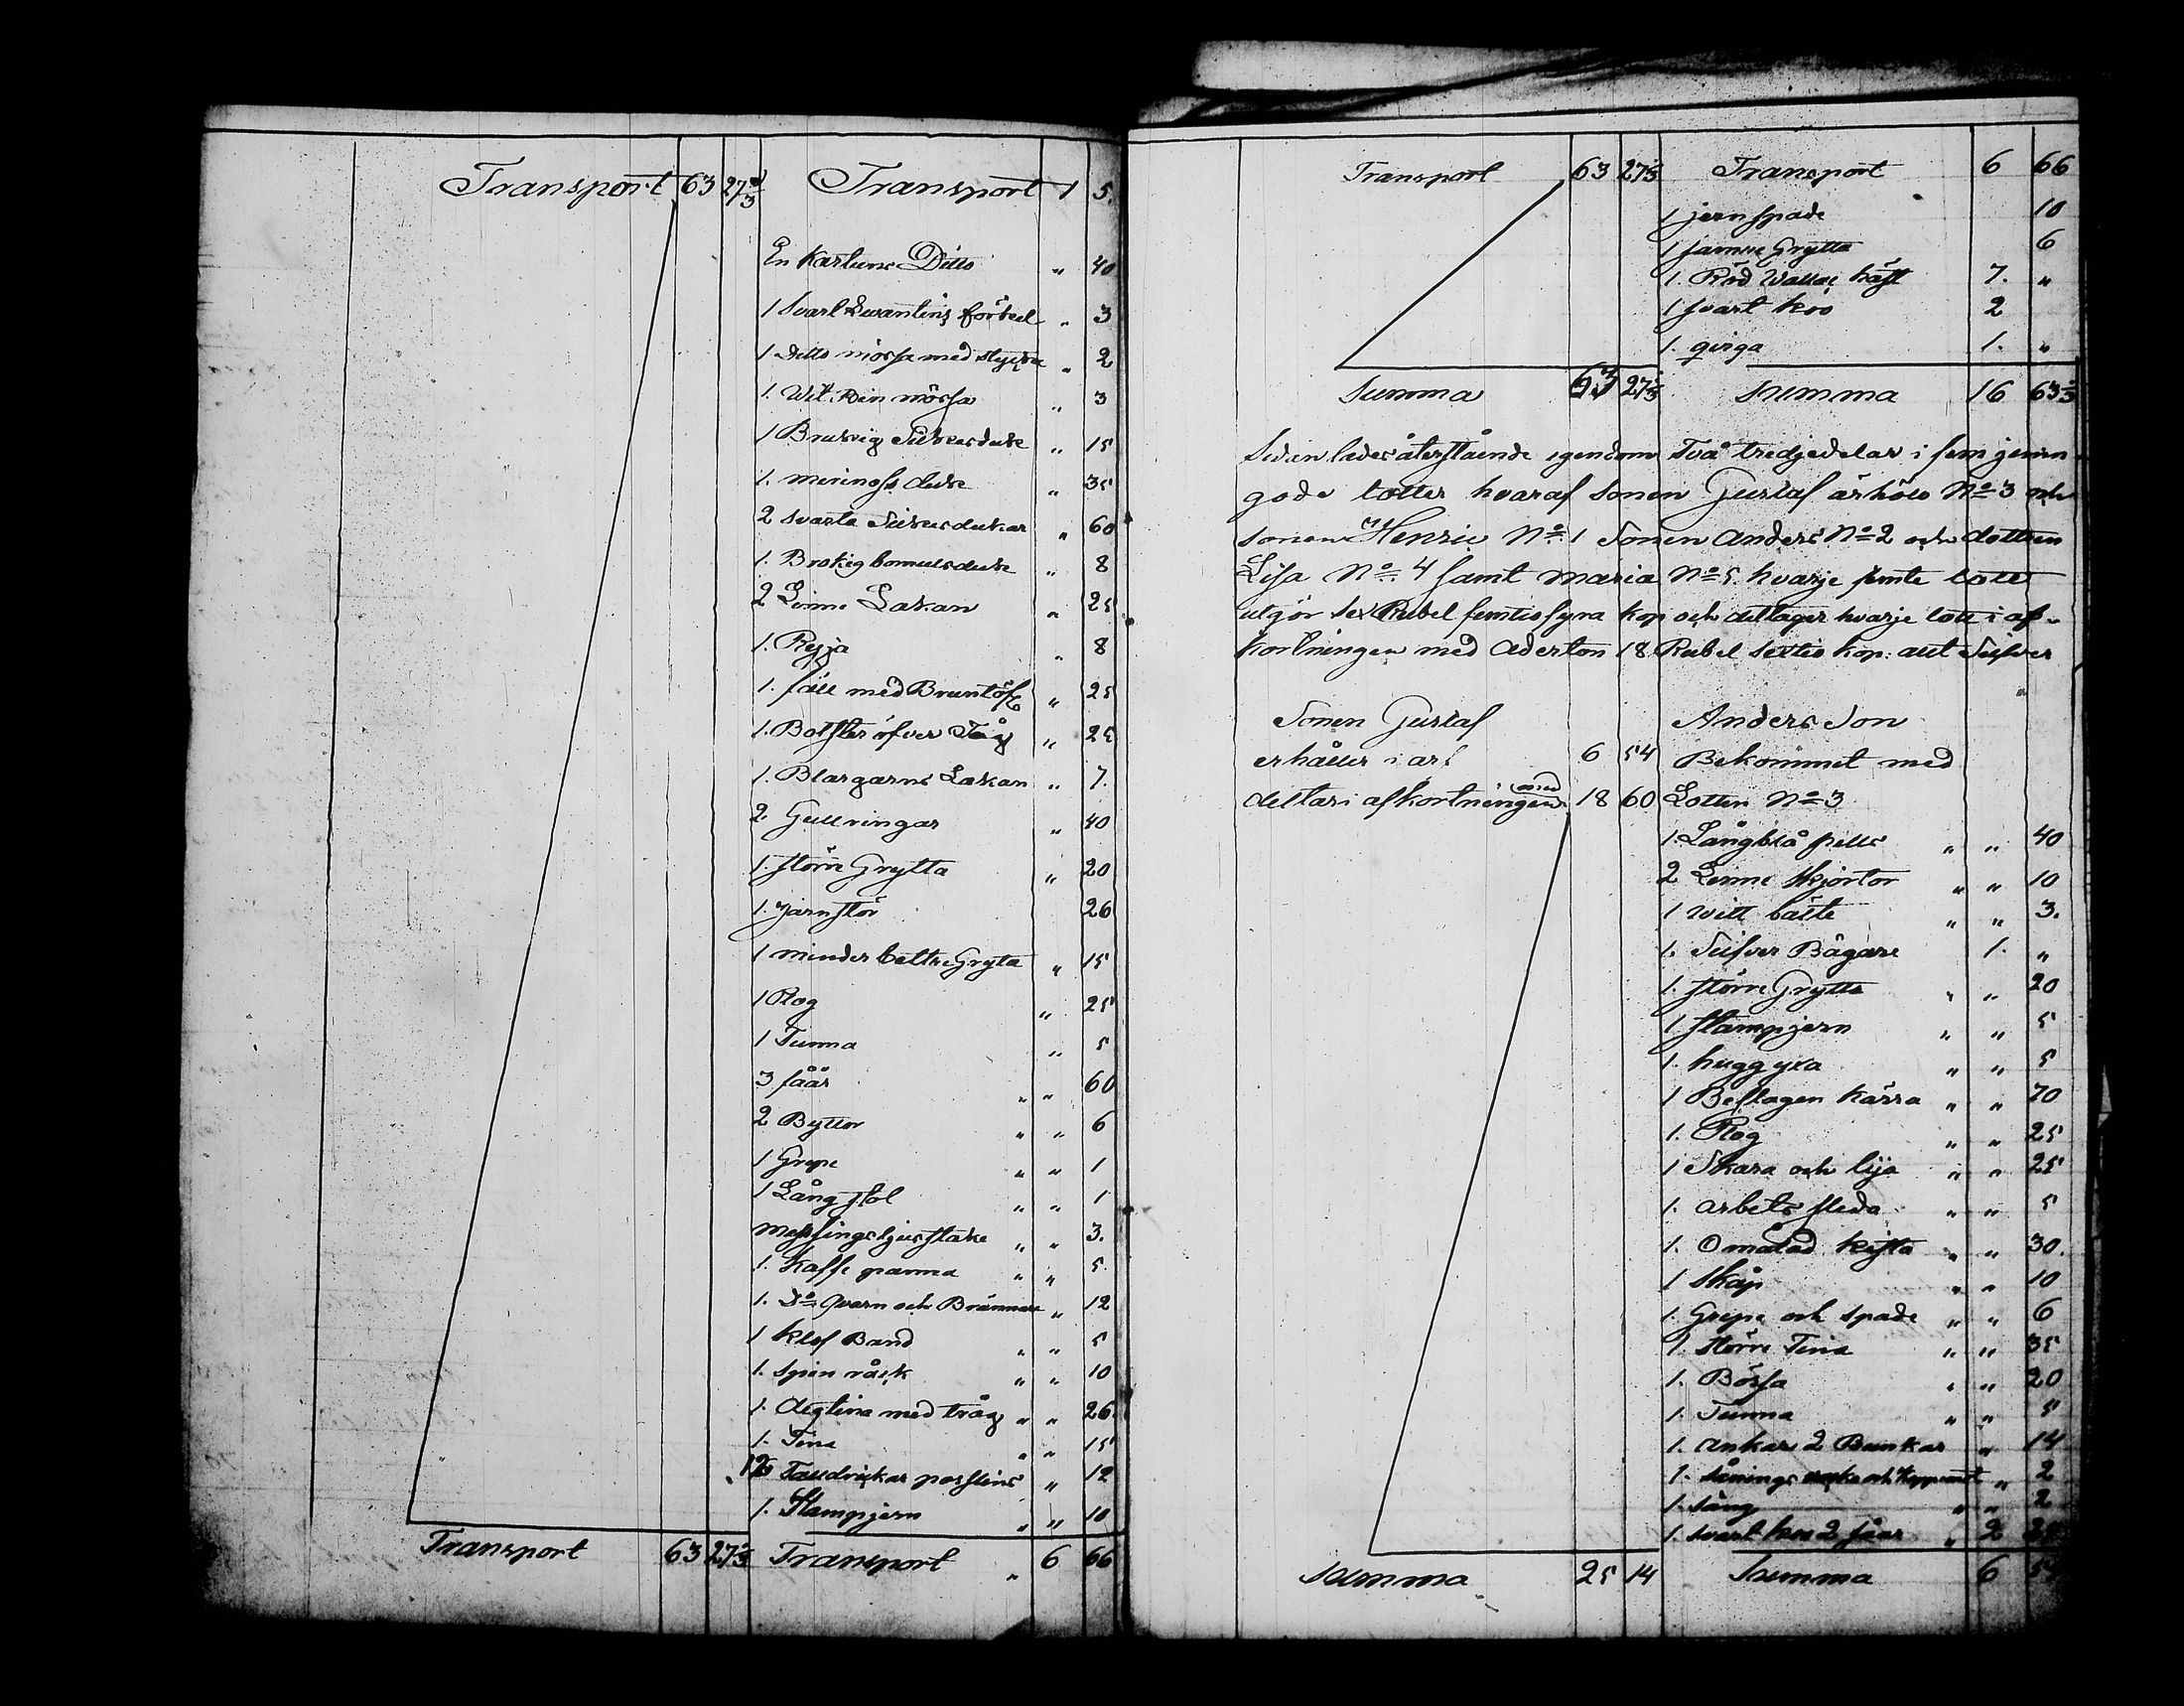 Transport 63 27 2/3 Transport 1 5.
En Kartuns Ditto " 40
1 Svart Levantins förked " 3
1 Ditto mössa med stycke " 2
1. Wit Bin mössa " 3
1 Brokig Silkesduk " 15
1. merinoss duk " 35
2 svarta Silkesdukar " 60
1. Brokig bomullsduk " 8
2 Linne Lakan " 25
1. Reyja " 8
1. fäll med Bruntöfv " 25
1. Bolster öfver Tåg " 25
1. Blargarns Lakan " 7.
2 Gullringar " 40
1. större Grytta " 20
1. järnstör 26
1 minder bättre Gryta " 15
1 Plog " 25
1 Tunna " 5
3 fåår " " 60
2 Byttor " " 6
1 Grepe " " 1
1 Lång stol " " 1
Messingsljusstake " " 3.
1. Kaffe panna " " 5.
1. Do qvarn och Brännare " 12
1 Klof Band " " 5
1. Spin råck " " 10
1. degtina med tråg " " 26.
1. Tina " " 15
12 Talldrickar porslins " 12
1. Stampjern " " 10
Transport 63 27 2/3 Transport " 6 66
Transport 63 27 2/3 Transport 6 66
1 jern spade 10
1 jamne Grytta 6
1. Röd Wallac häst 7. "
1 svart koo 2
1. qviga 1. "
Summa 63 27 2/3 Summa 16 63 2/3
Sedan lades återstående egendom Två tredjedelar i fem jemn
goda lotter hvaraf Sonen Gustaf ärhöll No 3 och
sonen Henric No 1 Sonen Anders No 2 och dottren
Lisa No 4 samt Maria No 5. hvarje femte lott
utgör sex Rubel femtiofyra kop och deltager hvarje lott i af-
kortningen med Aderton 18 Rubel sextio kop: allt Silfver
Sonen Gustaf Anders Son
erhåller i arf 6 54 Bekommet med
deltar i afkortningen med 18 60 Lotten No 3
1. Långblå pells " " 40
2 Linne Skjortor " " 10
1 witt bälte " " 3.
1. Silfver Bägare 1. "
1. större Grytta " " 20
1 stampjern " " 5
1. huggyxa " " 5
1 Beslagen kärra " " 70
1. Plog " " 25
1 Skara och lija " " 25
1. arbets släda " " 5
1. Omålad kista " " 30.
1 Skåp " " 10
1. Grepe och spade " " 6
1. större Tina " " 35
1. Bössa " " 20
1. Tunna " " 5
1. ankar 2 Bunkar " 14
1. sånings och " 2
1. säng " " 2
1. svart koo 2 fåår " 2
Summa 25 14 Summa 6 54